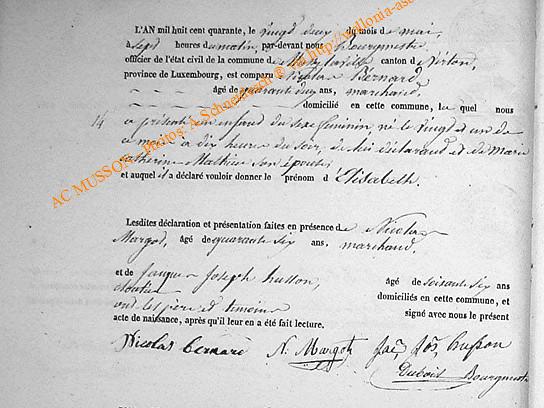 L'AN mil huit cent quarante, le vingt deux du mois de mai,
à sept heures du matin, par-devant nous Bourgmestre
officier de l'état civil de la commune de Mussy-la-ville canton de Virton,
province de Luxembourg, est comparu Nicolas Bernard
âgé de quarante deux ans, marchand,
domicilié en cette commune, le quel nous
14 a présenté un enfant du sexe féminin, né le vingt et un de
ce mois à dix heures du soir, de lui déclarant et de Marie
Catherine Mathieu son épouse
et auquel il a déclaré vouloir donner le prénom d'Elisabeth.
Lesdites déclaration et présentation faites en présence de Nicolas
Margot, âgé de quarante six ans, marchand,
et de Jacques Joseph husson, âgé de soisante six ans
cloutier domiciliés en cette commune, et
ont les père et témoins signé avec nous le présent
acte de naissance, après qu'il leur en a été fait lecture.
Nicolas bernard N. Margot Jac, Jos, husson
Dubois Bourgmestre
AC MUSSON - Photos: A. Schneebach @ via http://wallonia-as